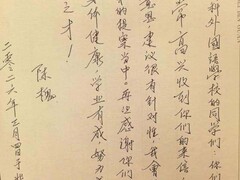 科外国語学校的同学们 你们
高兴收到你们的来信
意思 建议很有针对性，我会
的提案当中，再次感谢你们
身体健康，学业有成，努力
之才！
陈
二零二六年三月